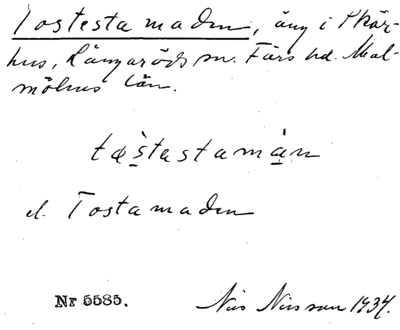 Tostesta maden, äng i Skär-
hus, Långaröds sn. Färs hd. Mal-
möhus län.
tæstastamån
el. Tostamaden
Nr 5585. Nils Nilsson 1934.